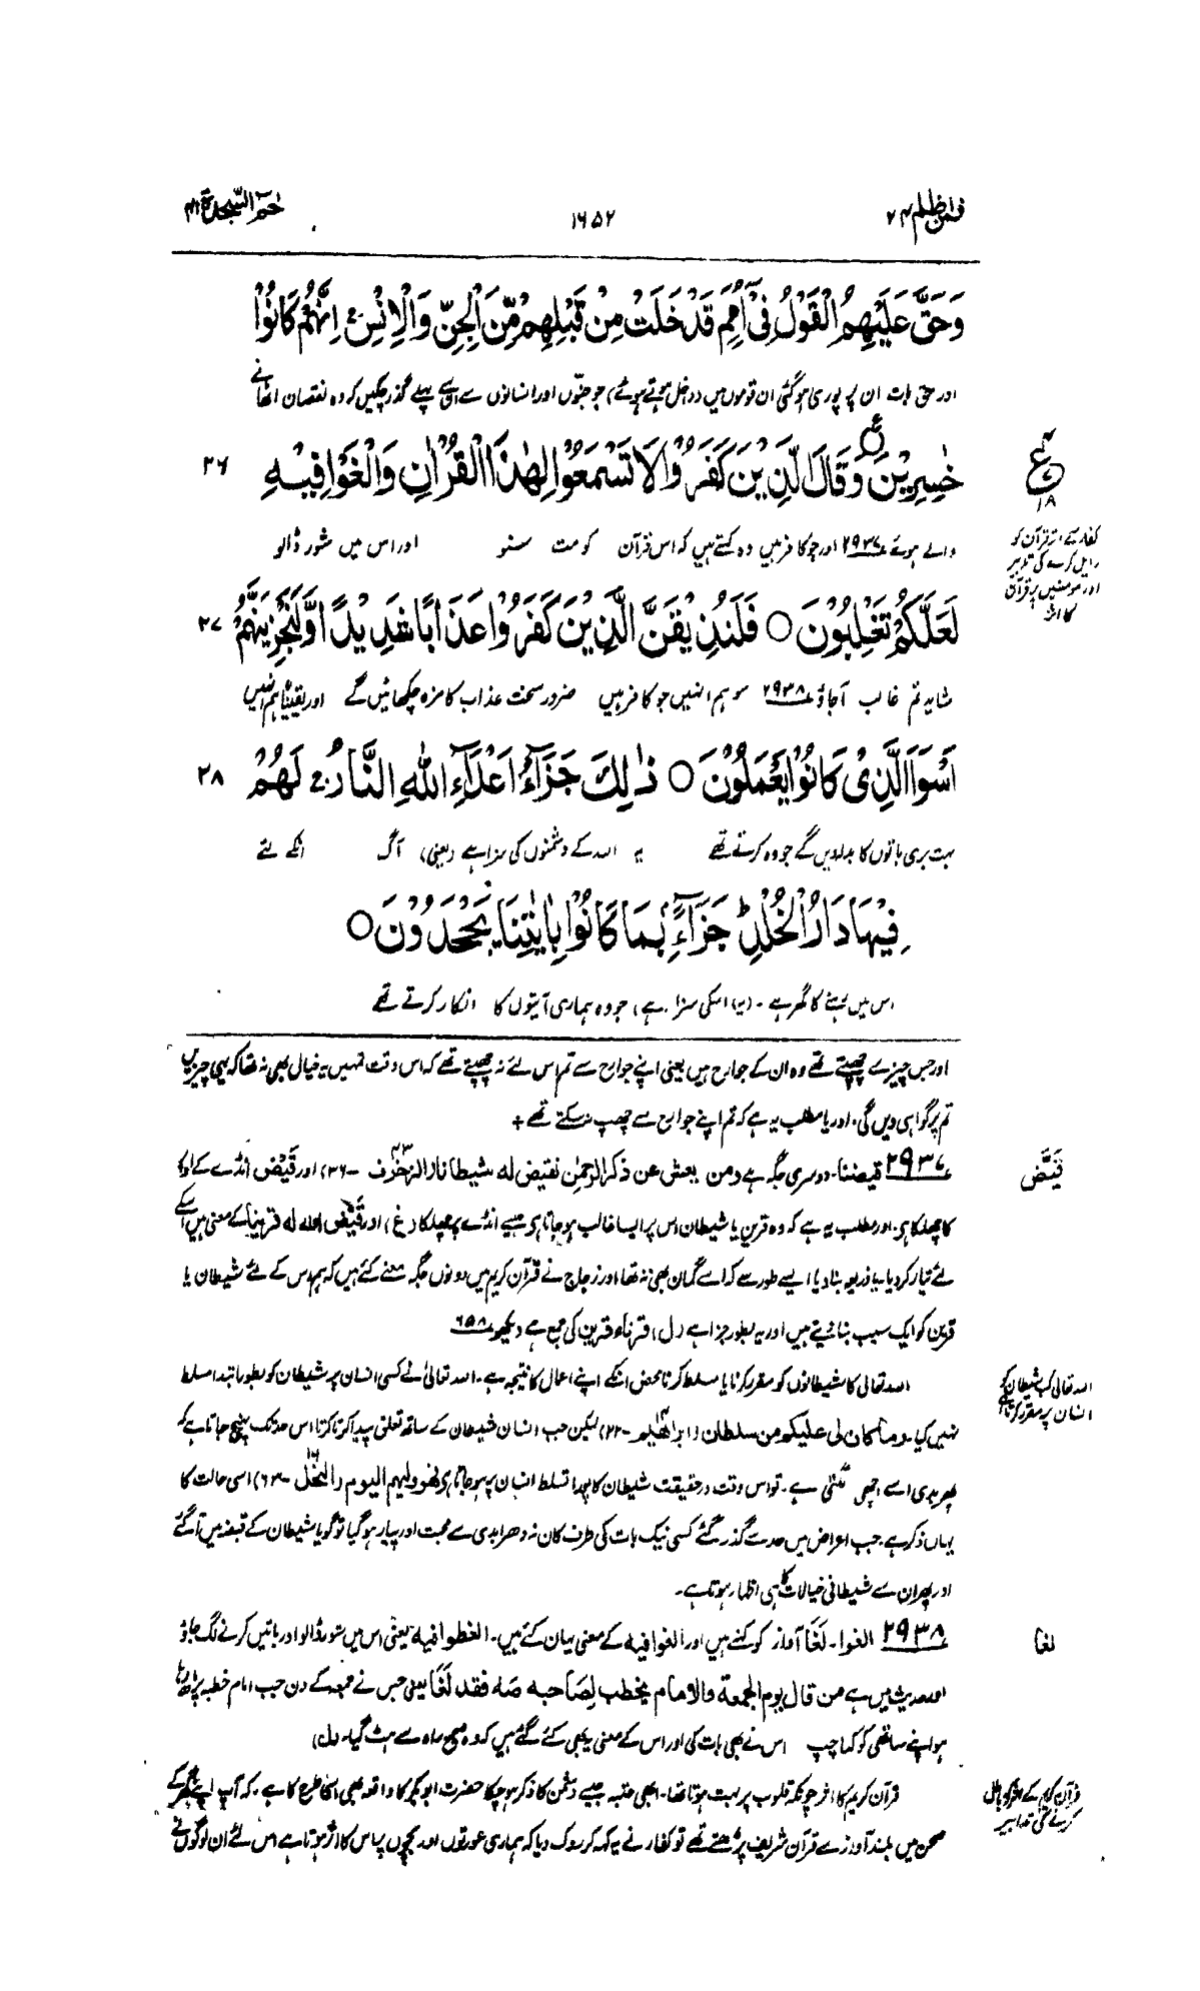 فمن اظلم ۲۴
۱۶۵۲
حٰمٓ السّجدۃ ۴۱
وَحَقَّ عَلَيْهِمُ الْقَوْلُ فِيْٓ اُمَمٍ قَدْ خَلَتْ مِنْ قَبْلِهِمْ مِّنَ الْجِنِّ وَالْاِنْسِ ۚ اِنَّهُمْ كَانُوْا
اور حق بات ان پر پوری ہو گئی ان قوموں میں (داخل ہوتے ہوئے) جو جنّوں اور انسانوں سے ان سے پہلے گذر چکیں کہ وہ نقصان اٹھانے
خٰسِرِيْنَ ○ وَقَالَ الَّذِيْنَ كَفَرُوْا لَا تَسْمَعُوْا لِهٰذَا الْقُرْاٰنِ وَالْغَوْا فِيْهِ
۲۶
ع
۱۸
والے ہوئے ۲۹۳۷ اور جو کافر ہیں وہ کہتے ہیں کہ اس قرآن کو مت سنو اور اس میں شور ڈالو
کفار کے اثر قرآن کو
زایل کرنے کی تدبیر
اور مومنین پر قرآن
کا اثر
لَعَلَّكُمْ تَغْلِبُوْنَ ○ فَلَنُذِيْقَنَّ الَّذِيْنَ كَفَرُوْا عَذَابًا شَدِيْدًا وَّلَنَجْزِيَنَّهُمْ
۲۷
شاید تم غالب آجاؤ ۲۹۳۸ سو ہم انہیں جو کافر ہیں ضرور سخت عذاب کا مزہ چکھائیں گے اور یقیناً ہم انہیں
اَسْوَاَ الَّذِيْ كَانُوْا يَعْمَلُوْنَ ○ ذٰلِكَ جَزَآءُ اَعْدَآءِ اللّٰهِ النَّارُ ۚ لَهُمْ
۲۸
بہت بری باتوں کا بدلہ دیں گے جو وہ کرتے تھے یہ اللہ کے دشمنوں کی سزا ہے (یعنی) آگ انکے لئے
فِيْهَا دَارُ الْخُلْدِ ۭ جَزَآءًۢ بِمَا كَانُوْا بِاٰيٰتِنَا يَجْحَدُوْنَ ○
اس میں رہنے کا گھر ہے ۔ (یہ) اسکی سزا (ہے) جو وہ ہماری آیتوں کا انکار کرتے تھے
اور جس چیز سے چھپتے تھے وہ ان کے جوارح ہیں یعنی اپنے جوارح سے تم اس لئے نہ چھپتے تھے کہ اس وقت تمہیں یہ خیال بھی نہ تھا کہ یہی چیزیں
تم پر گواہی دیں گی۔ اور یا مطلب یہ ہے کہ تم اپنے جوارح سے چھپ نہ سکتے تھے +
۲۹۳۷ قیضنا۔ دوسری جگہ ہے ومن یعش عن ذکر الرحمٰن نقیض لہ شیطانا (الزخرف ۴۳ – ۳۶) اور قَیْض انڈے کے اوپر
قَیَّضَ
کا چھلکا ہے۔ اور مطلب یہ ہے کہ وہ قرین یا شیطان اس پر ایسا غالب ہو جاتا ہے جیسے انڈے پر چھلکا (غ) اور قَیَّضَ اللہ لہ قرینا کے معنی ہیں اسکے
لئے تیار کر دیا۔ یا ذریعہ بنا دیا ایسے طور سے کہ اسے گمان بھی نہ تھا اور زجاج نے قرآن کریم میں دونوں جگہ معنے کئے ہیں کہ ہم اس کے لئے شیطان یا
قرین کو ایک سبب بنا دیتے ہیں اور یہ بطور جزا ہے (ل) قرناء قرین کی جمع ہے دیکھو ۶۵۸
اللہ تعالیٰ کا شیطانوں کو مقرر کرنا یا مسلط کرنا محض انکے اپنے اعمال کا نتیجہ ہے۔ اللہ تعالیٰ نے کسی انسان پر شیطان کو بطور ابتدا مسلط
اللہ تعالیٰ کب شیطان کو
انسان پر مقرر کرتا ہے
نہیں کیا۔ وما کان لی علیکم من سلطان (ابراھیم – ۲۲) لیکن جب انسان شیطان کے ساتھ تعلق پیدا کرتا کرتا اس حد تک پہنچ جاتا ہے کہ
پھر بدی اسے اچھی لگتی ہے۔ تو اس وقت درحقیقت شیطان کا پورا تسلط انسان پر ہو جاتا ہے فھو ولیھم الیوم (النحل ۱۶ – ۶۳) اسی حالت کا
یہاں ذکر ہے۔ جب اعراض میں حد سے گذر گئے کسی نیک بات کی طرف کان نہ دھرا بدی سے محبت اور پیار ہو گیا تو گویا شیطان کے قبضہ میں آ گئے
اور پھر ان سے شیطانی خیالات کا ہی اظہار ہوتا ہے۔
۲۹۳۸ الغوا۔ لَغَا آواز کو کہتے ہیں اور الغوا فیہ کے معنی بیان کئے ہیں۔ الغطوا فیہ یعنی اس میں شور ڈالو اور باتیں کرنے لگ جاؤ
لغا
اور حدیث میں ہے من قال یوم الجمعة والامام یخطب لصاحبہ صَہ فقد لَغَا یعنی جس نے جمعہ کے دن جب امام خطبہ پڑھ رہا
ہو اپنے ساتھی کو کہا چپ اس نے بھی بات کی اور اس کے معنی یہ بھی کئے گئے ہیں کہ وہ صحیح راہ سے ہٹ گیا۔ (ل)
قرآن کریم کا اثر چونکہ قلوب پر بہت ہوتا تھا۔ ابھی عتبہ جیسے دشمن کا ذکر ہو چکا حضرت ابو بکر کا واقعہ بھی اسی طرح کا ہے۔ کہ آپ اپنے گھر کے
قرآن کریم کے اثر کو باطل
کرنے کی تدابیر
صحن میں بلند آواز سے قرآن شریف پڑھتے تھے تو کفار نے یہ کہہ کر روک دیا کہ ہماری عورتوں اور بچوں پر اس کا اثر ہوتا ہے اس لئے ان لوگوں نے